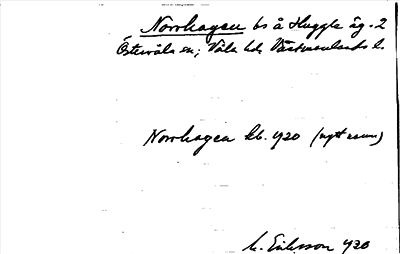 Norrhagen bs å Huggle äg. 2
Östervåla sn; Våla hd, Västmanlands l.
Norrhagen kb. 1920 (nytt namn)
M. Eriksson 1920